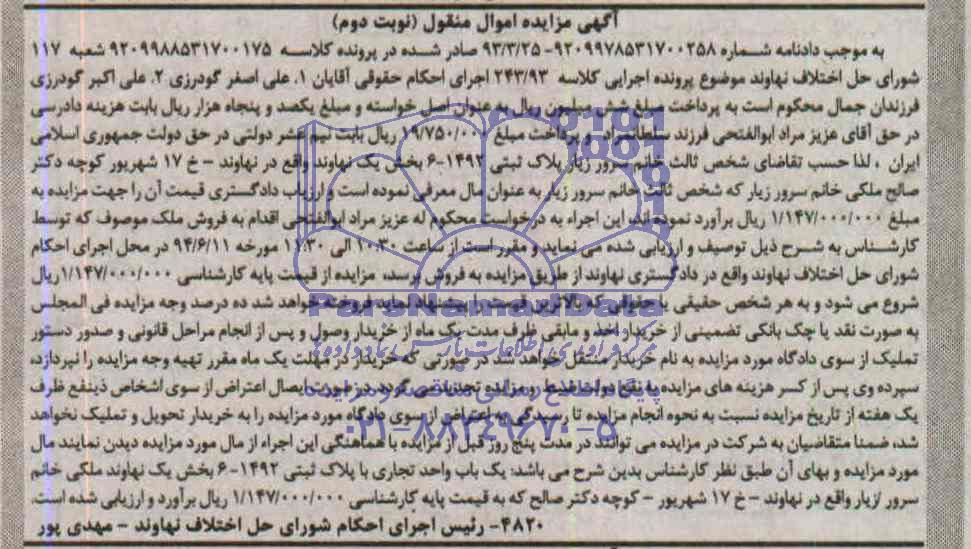 آگهی مزایده اموال منقول (نوبت دوم)
به موجب دادنامه شماره ۹۲۰۹۹۷۸۵۳۱۷۰۰۲۵۸-۹۳/۳/۲۵ صادر شده در پرونده کلاسه ۹۲۰۹۹۸۸۵۳۱۷۰۰۱۷۵ شعبه ۱۱۷
شورای حل اختلاف نهاوند موضوع پرونده اجرایی کلاسه ۲۴۳/۹۳ اجرای احکام حقوقی آقایان ۱. علی اصغر گودرزی ۲. علی اکبر گودرزی
فرزندان جمال محکوم است به پرداخت مبلغ شش میلیون ریال به عنوان اصل خواسته و مبلغ یکصد و پنجاه هزار ریال بابت هزینه دادرسی
در حق آقای عزیز مراد ابوالفتحی فرزند سلطانمراد و پرداخت مبلغ ۱۹/۷۵۰/۰۰۰ ریال بابت نیم عشر دولتی در حق دولت جمهوری اسلامی
ایران ، لذا حسب تقاضای شخص ثالث خانم سرور زیار پلاک ثبتی ۱۴۹۲-۶ بخش یک نهاوند واقع در نهاوند - خ ۱۷ شهریور کوچه دکتر
صالح ملکی خانم سرور زیار که شخص ثالث خانم سرور زیار به عنوان مال معرفی نموده است و ارزیاب دادگستری قیمت آن را جهت مزایده به
مبلغ ۱/۱۴۷/۰۰۰/۰۰۰ ریال برآورد نموده اند، این اجراء به درخواست محکوم له عزیز مراد ابوالفتحی اقدام به فروش ملک موصوف که توسط
کارشناس به شرح ذیل توصیف و ارزیابی شده می نماید و مقرر است از ساعت ۱۰:۳۰ الی ۱۱:۳۰ مورخه ۹۴/۶/۱۱ در محل اجرای احکام
شورای حل اختلاف نهاوند واقع در دادگستری نهاوند از طریق مزایده به فروش برسد، مزایده از قیمت پایه کارشناسی ۱/۱۴۷/۰۰۰/۰۰۰ ریال
شروع می شود و به هر شخص حقیقی یا حقوقی که بالاترین قیمت را پیشنهاد نماید فروخته خواهد شد ده درصد وجه مزایده فی المجلس
به صورت نقد یا چک بانکی تضمینی از خریدار اخذ و مابقی ظرف مدت یک ماه از خریدار وصول و پس از انجام مراحل قانونی و صدور دستور
تملیک از سوی دادگاه مورد مزایده به نام خریدار منتقل خواهد شد در صورتی که خریدار در مهلت یک ماه مقرر تهیه وجه مزایده را نپردازد،
سپرده وی پس از کسر هزینه های مزایده به نفع دولت ضبط و مزایده تجدید می گردد در صورت ایصال اعتراض از سوی اشخاص ذینفع ظرف
یک هفته از تاریخ مزایده نسبت به نحوه انجام مزایده تا رسیدگی به اعتراض از سوی دادگاه مورد مزایده را به خریدار تحویل و تملیک نخواهد
شد، ضمنا متقاضیان به شرکت در مزایده می توانند در مدت پنج روز قبل از مزایده با هماهنگی این اجراء از مال مورد مزایده دیدن نمایند مال
مورد مزایده و بهای آن طبق نظر کارشناس بدین شرح می باشد: یک باب واحد تجاری با پلاک ثبتی ۱۴۹۲-۶ بخش یک نهاوند ملکی خانم
سرور ازیار واقع در نهاوند - خ ۱۷ شهریور - کوچه دکتر صالح که به قیمت پایه کارشناسی ۱/۱۴۷/۰۰۰/۰۰۰ ریال برآورد و ارزیابی شده است.
۴۸۲۰- رئیس اجرای احکام شورای حل اختلاف نهاوند - مهدی پور
ParsNamadData
مرکز فرآوری اطلاعات پارس نماد داده ها
پایگاه اطلاع رسانی مناقصه و مزایده
۰۲۱-۸۸۳۴۹۶۷۰-۵